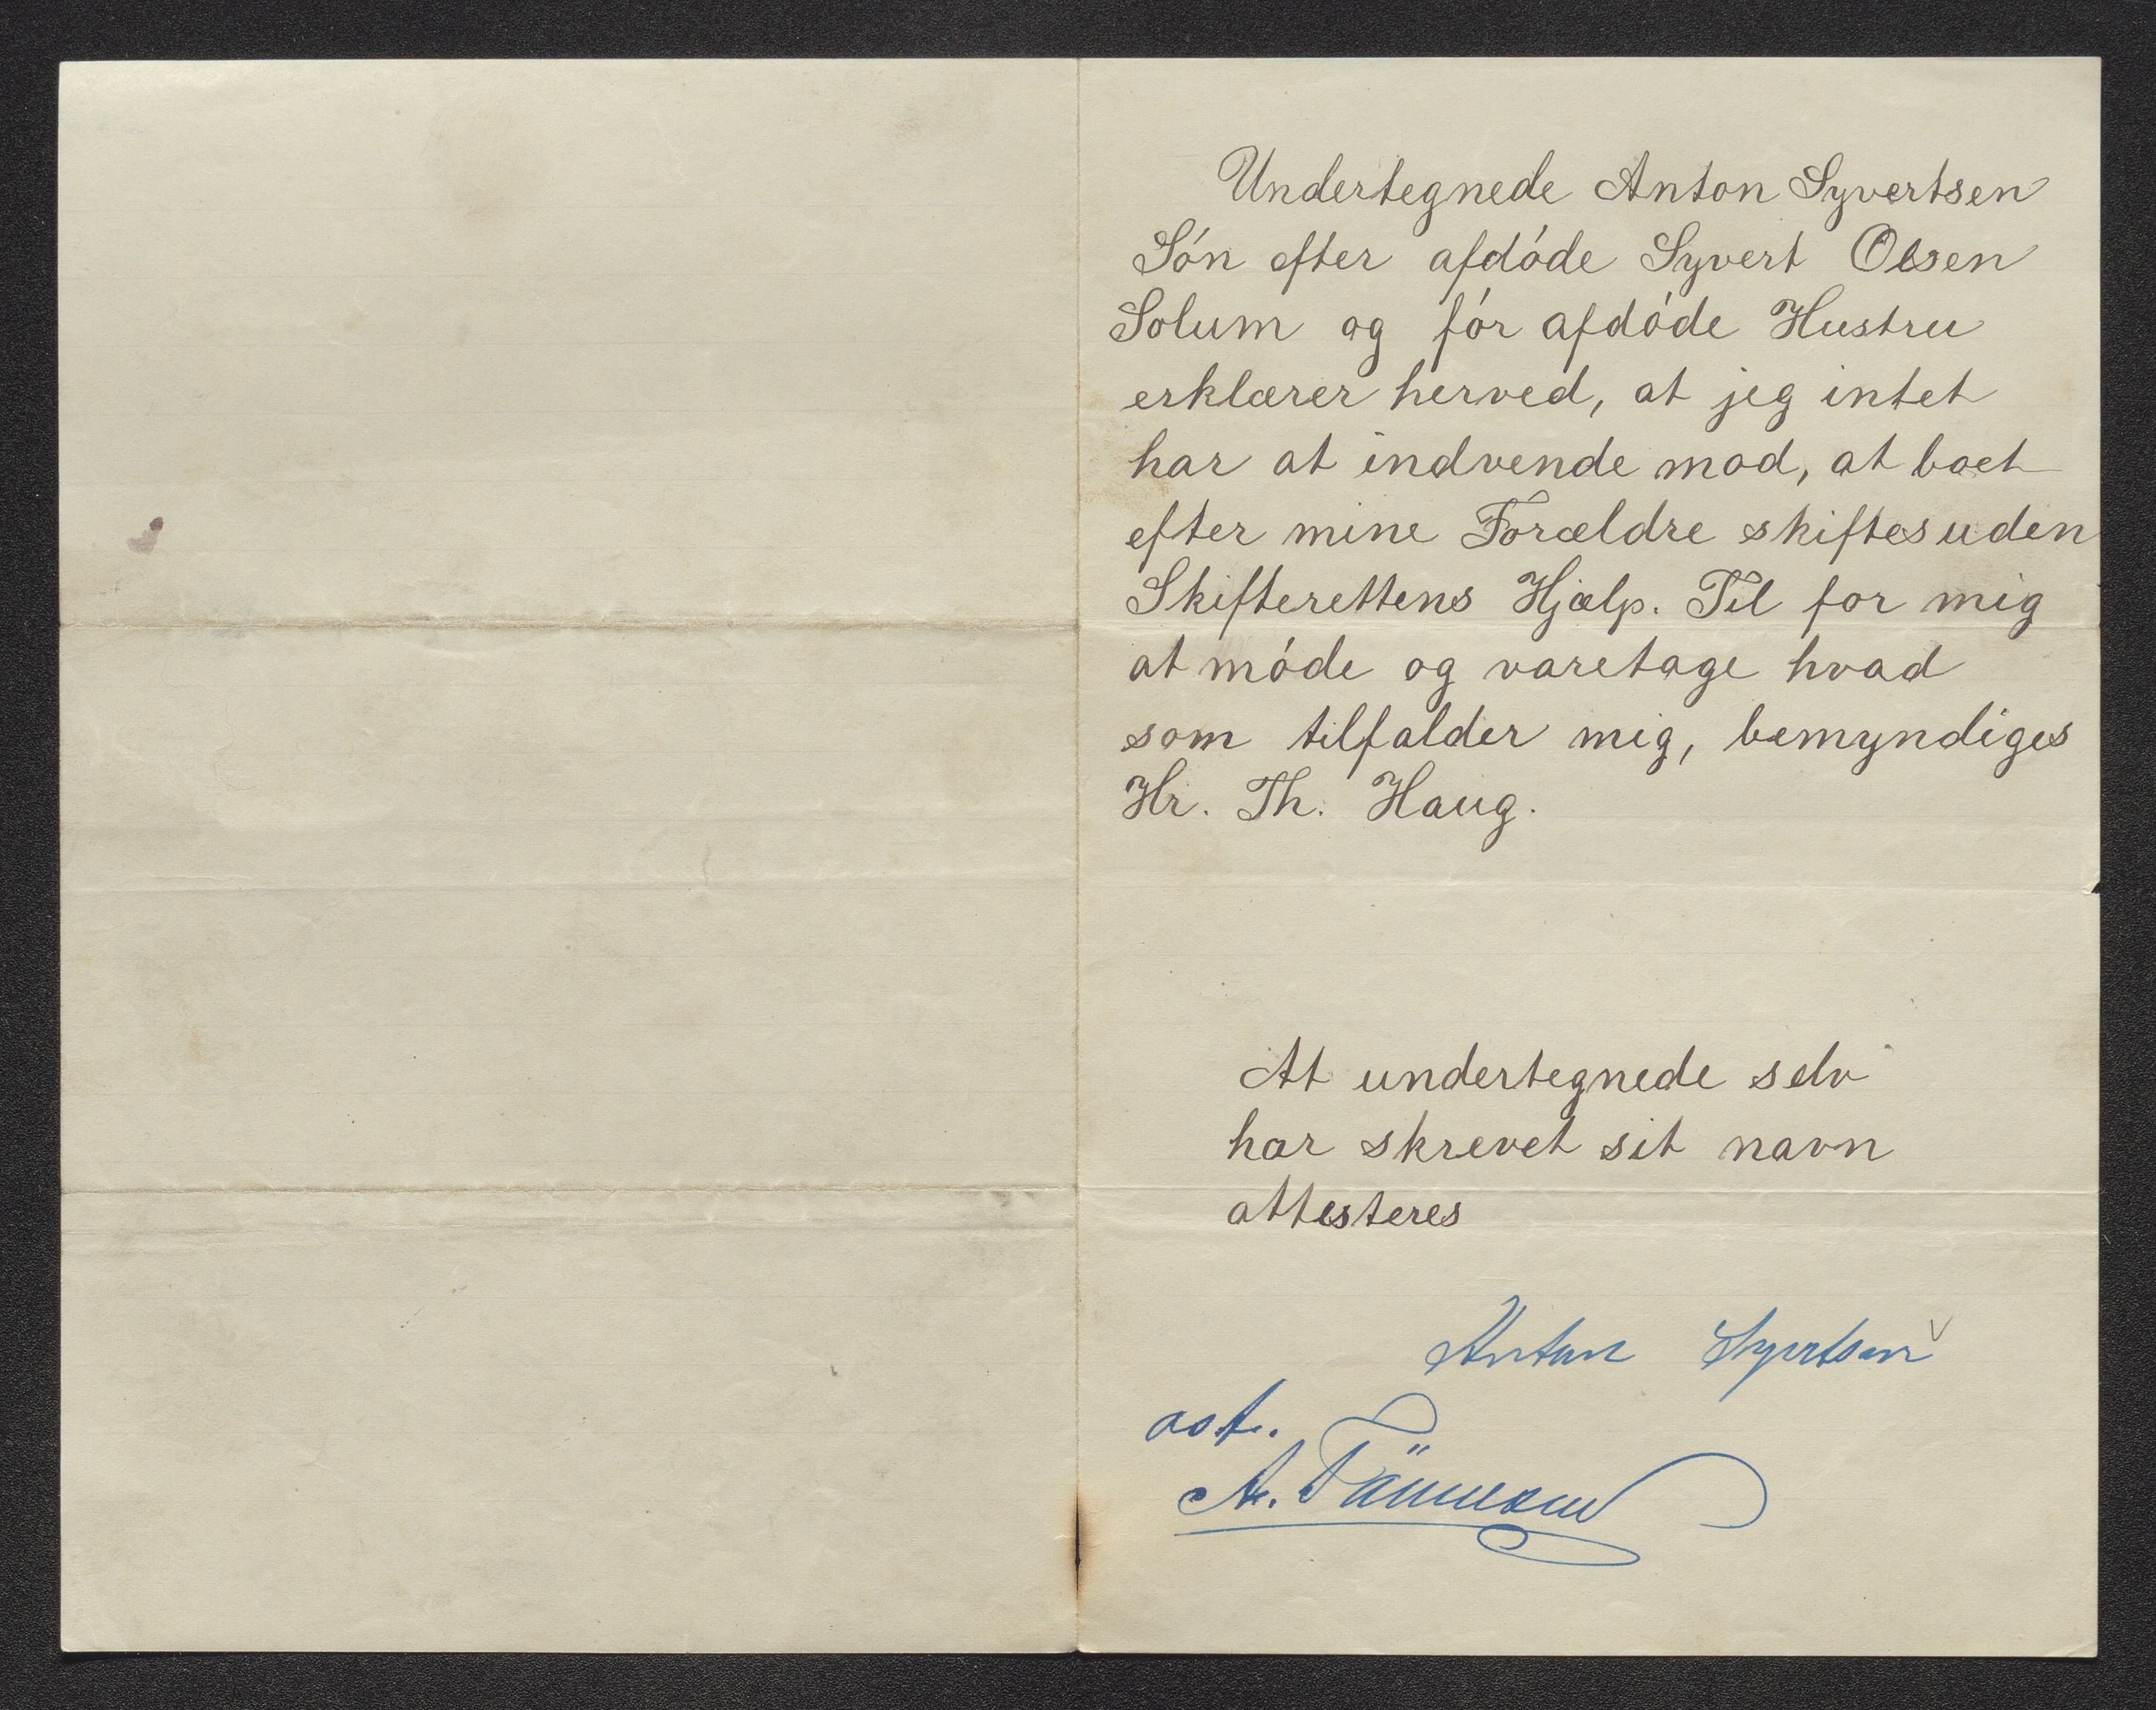 Undertegnede Anton Syvertsen
Són efter afdóde Syvert Olsen
Solum og fór afdóde Hustru
erklærer herved, at jeg intet
har at indvende mod, at boet
efter mine Forældre skiftes uden
Skifterettens Hjælp. Til for mig
at móde og varetage hvad
som tilfalder mig, bemyndiges
Hr. Th. Haug.
At undertegnede selv
har skrevet sit navn
attesteres
Anton Syvertsen
A.